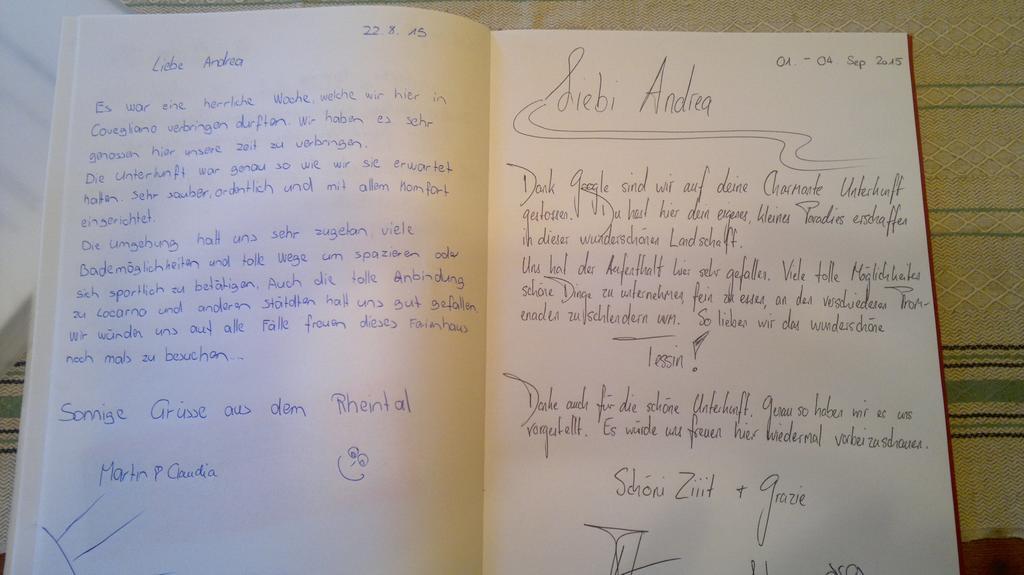 22.8.15
Liebe Andrea
Es war eine herrliche Woche, welche wir hier in
Covegliano verbringen durften. Wir haben es sehr
genossen hier unsere Zeit zu verbringen.
Die Unterkunft war genau so wie wir sie erwartet
hatten. Sehr sauber, ordentlich und mit allem Komfort
eingerichtet.
Die Umgebung hatt uns sehr zugetan, viele
Bademöglichkeiten und tolle Wege um spazieren oder
sich sportlich zu betätigen. Auch die tolle Anbindung
zu Locarno und anderen Stätdten hatt uns gut gefallen.
Wir würden uns auf alle Fälle freuen dieses Farienhaus
noch mals zu besuchen...
Sonnige Grüsse aus dem Rheintal
Martin & Claudia
01. - 04. Sep 2015
Liebi Andrea
Dank Google sind wir auf deine Charmante Unterkunft
gestossen. Du hast hier dein eigenes, kleines Paradies erschaffen
in dieser wunderschönen Landschaft.
Uns hat der Aufenthalt hier sehr gefallen. Viele tolle Möglichkeiten
schöne Dinge zu unternehmen, fein zu essen, an den verschiedenen Prom-
enaden zu schlendern uvm. So lieben wir das wunderschöne
Tessin!
Danke auch für die schöne Unterkunft. Genau so haben wir es uns
vorgestellt. Es würde uns freuen hier wiedermal vorbeizuschauen.
Schöni Ziiit + Grazie